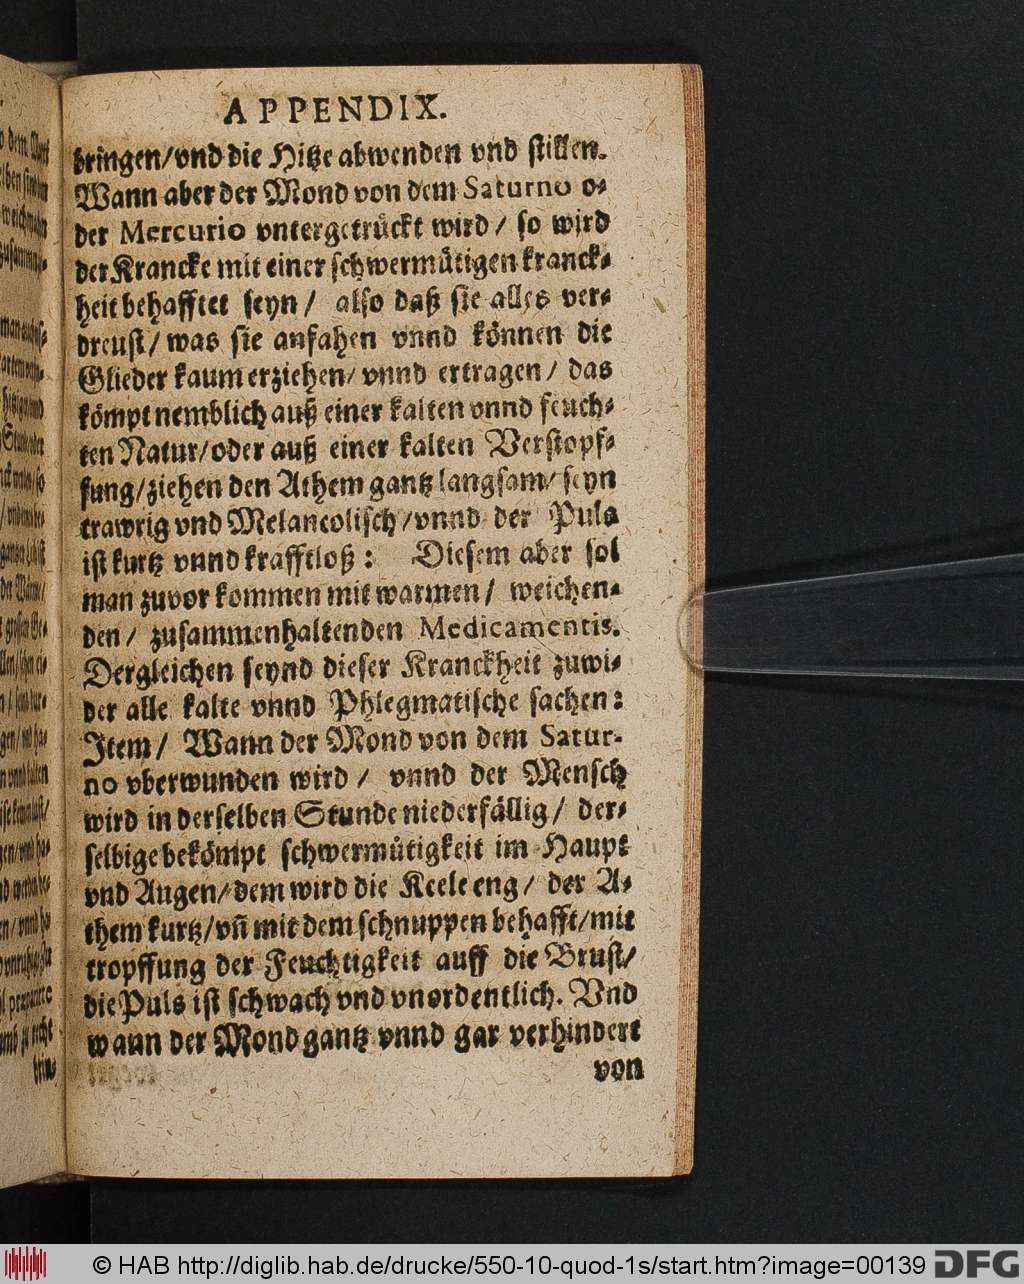 APPENDIX.
bringen/vnd die Hitze abwenden vnd stillen.
Wann aber der Mond von dem Saturno o⸗
der Mercurio vntergetruͤckt wird / so wird
der Krancke mit einer schwermuͤtigen kranck⸗
heit behafftet seyn / also daß sie alles ver⸗
dreust/was sie anfahen vnnd koͤnnen die
Glieder kaum erziehen/ vnnd ertragen / das
koͤmpt nemblich auß einer kalten vnnd feuch⸗
ten Natur/oder auß einer kalten Verstopf⸗
fung/ziehen den Athem gantz langsam/ seyn
trawrig vnd Melancolisch/vnnd der Puls
ist kurtz vnnd krafftloß: Diesem aber sol
man zuvor kommen mit warmen / weichen⸗
den / zusammenhaltenden Medicamentis.
Dergleichen seynd dieser Kranckheit zuwi⸗
der alle kalte vnnd Phlegmatische sachen:
Item / Wann der Mond von dem Satur-
no vberwunden wird / vnnd der Mensch
wird in derselben Stunde niederfaͤllig / der⸗
selbige bekoͤmpt schwermuͤtigkeit im Haupt
vnd Augen/dem wird die Keele eng / der A⸗
them kurtz/vñ mit dem schnuppen behafft/mit
tropffung der Feuchtigkeit auff die Brust/
die Puls ist schwach vnd vnordentlich. Vnd
wann der Mond gantz vnnd gar verhindert
von
© HAB http://diglib.hab.de/drucke/550-10-quod-1s/start.htm?image=00139 DFG